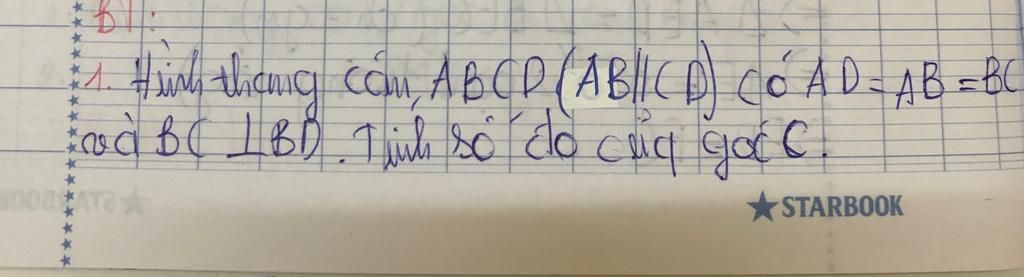 BT:
1. Hình thang cân, ABCD (AB//CD) có AD = AB = BC
và BC ⊥ BD. Tính số đo của góc C.
★ STARBOOK